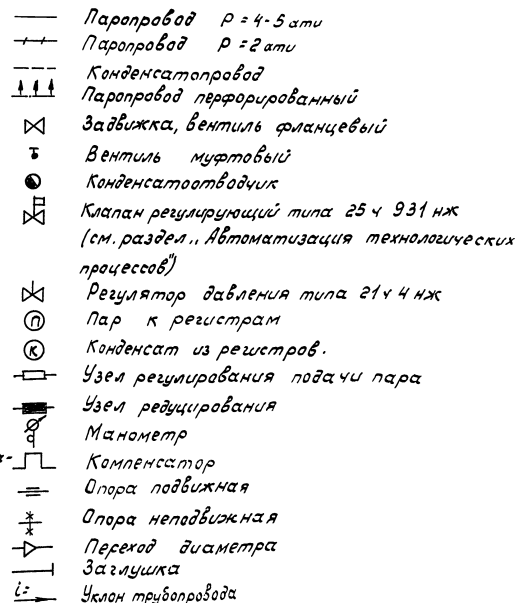 Паропровод P = 4-5 ати
Паропровод P = 2 ати
Конденсатопровод
Паропровод перфорированный
Задвижка, вентиль фланцевый
Вентиль муфтовый
Конденсатоотводчик
Клапан регулирующий типа 25ч 931 нж
(см. раздел „Автоматизация технологических
процессов")
Регулятор давления типа 21ч 4 нж
П Пар к регистрам
К Конденсат из регистров.
Узел регулирования подачи пара
Узел редуцирования
Манометр
Компенсатор
Опора подвижная
Опора неподвижная
Переход диаметра
Заглушка
i= Уклон трубопровода